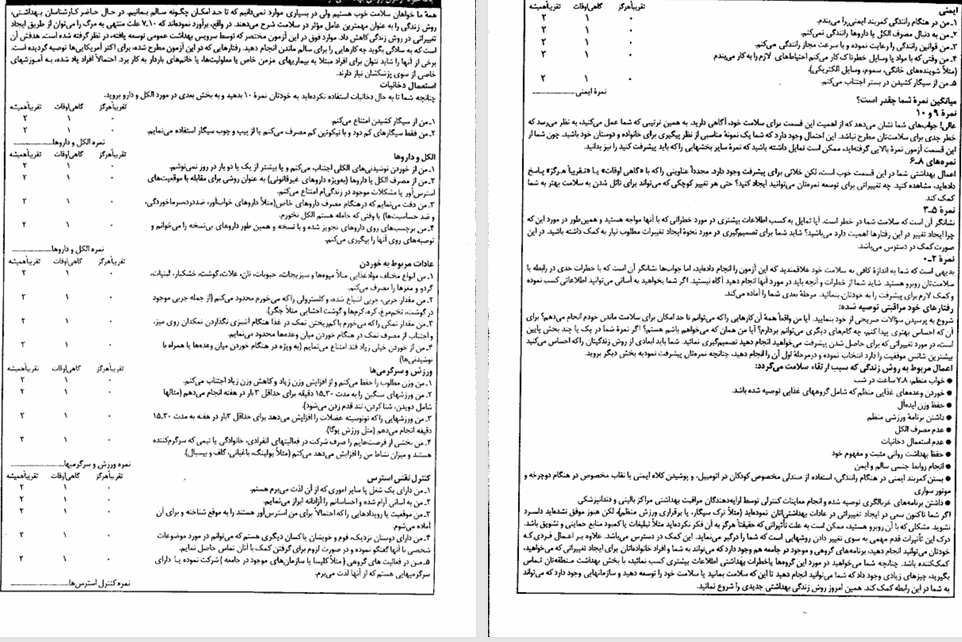 همهٔ ما خواهان سلامت خوب هستیم ولی در بسیاری موارد نمی‌دانیم که تا حد امکان چگونه سالم بمانیم. در حال حاضر کارشناسان بهداشتی،
روش زندگی را به عنوان مهمترین عامل مؤثر در سلامت شرح می‌دهند. در واقع، برآورد نموده‌اند که ۷.۱۰ علت منتهی به مرگ را می‌توان از طریق ایجاد
تغییراتی در روش زندگی کاهش داد. موارد فوق در این آزمون مختصر که توسط سرویس بهداشت عمومی توسعه یافته، در نظر گرفته شده است. هدفش آن
است که به سادگی بگوید چه کارهایی را برای سالم ماندن انجام دهید. رفتارهایی که در این آزمون مطرح شده، برای اکثر آمریکایی‌ها توصیه گردیده است.
برخی از آنها را شاید نتوان برای افراد مبتلا به بیماریهای مزمن خاص یا معلولیت‌ها، یا خانم‌های باردار به کار برد. احتمالاً افراد یاد شده، به آموزشهای
خاصی از سوی پزشکشان نیاز دارند.
استعمال دخانیات
چنانچه شما تا به حال دخانیات استفاده نکرده‌اید به خودتان نمرهٔ ۱۰ بدهید و به بخش بعدی در مورد الکل و دارو بروید.
تقریباً هرگز گاهی اوقات تقریباً همیشه
۱ـ من از سیگار کشیدن امتناع می‌کنم. ۰ ۱ ۲
۲ـ من فقط سیگارهای کم دود و با نیکوتین کم مصرف می‌کنم یا از پیپ و چوب سیگار استفاده نمی‌نمایم. ۰ ۱ ۲
نمره الکل و داروها
الکل و داروها تقریباً هرگز گاهی اوقات تقریباً همیشه
۱ـ من از خوردن نوشیدنی‌های الکلی اجتناب می‌کنم و یا بیشتر از یک یا دو بار در روز نمی‌نوشم. ۰ ۱ ۲
۲ـ من از مصرف الکل یا داروها (به‌ویژه داروهای غیرقانونی) به عنوان روشی برای مقابله با موقعیت‌های ۰ ۱ ۲
استرس‌آور یا مشکلات موجود در زندگی‌ام امتناع می‌کنم.
۳ـ من دقت می‌نمایم که درهنگام مصرف داروهای خاص(مثلاً داروهای خواب‌آور، ضددردسرماخوردگی، ۰ ۱ ۲
و ضد حساسیت‌ها) یا وقتی که حامله هستم الکل نخورم.
۴ـ من برچسب‌های روی داروهای تجویز شده و با نسخه و همین طور داروهای بی‌نسخه را می‌خوانم و ۰ ۱ ۲
توصیه‌های روی آنها را پیگیری می‌کنم.
نمره الکل و داروها
عادات مربوط به خوردن تقریباً هرگز گاهی اوقات تقریباً همیشه
۱ـ من انواع مختلف موادغذایی مثلاً میوه‌ها و سبزیجات، حبوبات، نان، غلات، گوشت، خشکبار، لبنیات، ۰ ۱ ۲
گردو و مغزها را مصرف می‌کنم.
۲ـ من مقدار چربی، چربی اشباع شده، و کلسترولی را که می‌خورم محدود می‌کنم (از جمله چربی موجود ۰ ۱ ۲
در گوشت، تخم‌مرغ، کره، کرم‌ها و گوشت احشایی مثلاً جگر).
۳ـ من مقدار نمکی را که می‌خورم با کم‌ریختن نمک در غذا هنگام آشپزی نگذاردن نمکدان روی میز، ۰ ۱ ۲
و اجتناب از مصرف نمک در هنگام خوردن میان وعده‌ها محدود می‌نمایم
۴ـ من از خوردن خیلی زیاد قند امتناع می‌نمایم (به ویژه در هنگام خوردن میان وعده‌ها یا همراه با ۰ ۱ ۲
نوشیدنی‌ها)
ورزش و سرگرمی‌ها تقریباً هرگز گاهی اوقات تقریباً همیشه
۱ـ من وزن مطلوب را حفظ می‌کنم و از افزایش وزن زیاد و کاهش وزن زیاد اجتناب می‌کنم. ۰ ۱ ۲
۲ـ من ورزشهای سنگین را به مدت ۳۰ـ۱۵ دقیقه برای حداقل ۳ بار در هفته انجام می‌دهم (مثالها ۰ ۱ ۲
شامل دویدن، شنا کردن، تند قدم زدن می‌شود).
۳ـ من ورزشهایی را که تونوسیته عضلات را افزایش می‌دهد برای حداقل ۳بار در هفته به مدت ۳۰ـ۱۵ ۰ ۱ ۲
دقیقه انجام می‌دهم (مثل ورزش یوگا).
۴ـ من بخشی از فرصت‌هایم را صرف شرکت در فعالیتهای انفرادی، خانوادگی یا تیمی که سرگرم‌کننده ۰ ۱ ۲
هستند و میزان نشاط من را افزایش می‌دهد می‌کنم (مثلاً بولینگ، باغبانی، گلف و بیسبال).
نمره ورزش و سرگرمیها
کنترل نقش استرس تقریباً هرگز گاهی اوقات تقریباً همیشه
۱ـ من دارای یک شغل یا سایر اموری که از آن لذت می‌برم هستم. ۰ ۱ ۲
۲ـ من به آسانی آرام شده و احساساتم را آزادانه ابراز می‌نمایم. ۰ ۱ ۲
۳ـ من موقعیت یا رویدادهایی را که احتمالاً برای من استرس‌آور هستند را به موقع شناخته و برای آن ۰ ۱ ۲
آماده می‌شوم.
۴ـ من دارای دوستان نزدیک، قوم و خویشان یا کسان دیگری هستم که می‌توانم در مورد موضوعات ۰ ۱ ۲
شخصی با آنها گفتگو نموده و در صورت لزوم برای گرفتن کمک با آنان تماس حاصل نمایم.
۵ـ من در فعالیت های گروهی (مثلاً کلیسا یا سازمان‌های موجود در جامعه) شرکت نموده یا دارای ۰ ۱ ۲
سرگرمیهایی هستم که از آنها لذت می‌برم.
نمره کنترل استرس‌ها
ایمنی تقریباً هرگز گاهی اوقات تقریباً همیشه
۱ـ من در هنگام رانندگی کمربند ایمنی را می‌بندم. ۰ ۱ ۲
۲ـ من به دنبال مصرف الکل یا داروها رانندگی نمی‌کنم. ۰ ۱ ۲
۳ـ من قوانین رانندگی را رعایت نموده و با سرعت مجاز رانندگی می‌کنم. ۰ ۱ ۲
۴ـ من وقتی که با مواد یا وسایل خطرناک کار می‌کنم احتیاط‌های لازم را به کار می‌بندم ۰ ۱ ۲
(مثلاً شوینده‌های خانگی، سموم، وسایل الکتریکی).
۵ـ من از سیگار کشیدن در بستر اجتناب می‌کنم. ۰ ۱ ۲
نمرهٔ ایمنی
میانگین نمرهٔ شما چقدر است؟
نمرهٔ ۹ و ۱۰
عالی! جواب‌های شما نشان می‌دهد که از اهمیت این قسمت برای سلامت خود، آگاهی دارید. به همین ترتیبی که شما عمل می‌کنید، به نظر می‌رسد که
خطر جدی برای سلامت‌تان مطرح نباشد. این احتمال وجود دارد که شما یک نمونهٔ مناسبی از نظر پیگیری برای خانواده و دوستان خود باشید. چون شما از
این قسمت آزمون نمرهٔ بالایی گرفته‌اید، ممکن است تمایل داشته باشید که نمرهٔ سایر بخشهایی را که باید پیشرفت کنید را نیز بدانید.
نمره‌های ۸ـ۶
اعمال بهداشتی شما در این قسمت خوب است، لکن خلائی برای پیشرفت وجود دارد. مجدداً عناوینی را که با «گاهی اوقات» یا «تقریباً هرگز» پاسخ
داده‌اید، مشاهده کنید. چه تغییراتی برای توسعه نمره‌تان می‌توانید ایجاد کنید؟ حتی هر تغییر کوچکی که می‌تواند برای نائل شدن به سلامت بهتر به شما
کمک کند.
نمرهٔ ۵ـ۳
نشانگر آن است که سلامت شما در خطر است. آیا تمایل به کسب اطلاعات بیشتری در مورد خطراتی که با آنها مواجه هستید و همین‌طور در مورد این که
چرا ایجاد تغییر در این رفتارها اهمیت دارد می‌باشید؟ شاید شما برای تصمیم‌گیری در مورد نحوهٔ ایجاد تغییرات مطلوب نیاز به کمک داشته باشید. در این
صورت کمک در دسترس می‌باشد.
نمرهٔ ۲ـ۰
بدیهی است که شما به اندازهٔ کافی به سلامت خود علاقمندید که این آزمون را انجام داده‌اید، اما جواب‌ها نشانگر آن است که با خطرات جدی در رابطه با
سلامت‌تان روبرو هستید. شاید شما از خطرات و آنچه باید در مورد آنها انجام دهید آگاه نیستید. اگر شما بخواهید به آسانی می‌توانید اطلاعاتی کسب نموده
و کمک لازم برای پیشرفت را به خودتان بنمائید. مرحلهٔ بعدی شما را آماده می‌کند.
رفتارهای خود مراقبتی توصیه شده:
شروع به پرسیدن سؤالات صریحی از خود بنمایید. آیا من واقعاً همهٔ آن کارهایی را که می‌توانم تا حد امکان برای سلامت ماندن خودم انجام می‌دهم؟ برای
آن که احساس بهتری پیدا کنم، چه گام‌های دیگری می‌توانم بردارم؟ آیا من همان که می‌خواهم باشم هستم؟ اگر نمرهٔ شما در یک یا چند بخش پایین
است، در مورد تغییراتی که برای حاصل شدن پیشرفت می‌خواهید انجام دهید تصمیم‌گیری نمائید. شما باید ابعادی از روش زندگیتان را که احساس می‌کنید
بیشترین شانس موفقیت را دارد انتخاب نموده و درمرحلهٔ اول آن را انجام دهید، چنانچه نمره‌تان پیشرفت نمود به بخش دیگر بروید.
اعمال مربوط به روش زندگی که سبب ارتقاء سلامت می‌گردد:
● خواب منظم، ۸ـ۷ ساعت در شب
● خوردن وعده‌های غذایی منظم که شامل گروههای غذایی توصیه شده باشد.
● حفظ وزن ایده‌آل
● داشتن برنامهٔ ورزشی منظم
● عدم مصرف الکل
● عدم استعمال دخانیات
● حفظ بهداشت روانی مثبت و مفهوم خود
● انجام روابط جنسی سالم و ایمن
● بستن کمربند ایمنی در هنگام رانندگی، استفاده از صندلی مخصوص کودکان در اتومبیل، و پوشیدن کلاه ایمنی یا نقاب مخصوص در هنگام دوچرخه و
موتور سواری
● داشتن برنامه‌های غربالگری توصیه شده و انجام معاینات کنترلی توسط ارایه‌دهندگان مراقبت بهداشتی مراکز بالینی و دندانپزشکی
اگر شما تاکنون سعی در ایجاد تغییراتی در عادات بهداشتی‌تان نموده‌اید (مثلاً ترک سیگار، یا برقراری ورزش منظم)، لکن هنوز موفق نشده‌اید دلسرد
نشوید. مشکلی که با آن روبرو هستید، ممکن است به علت تأثیراتی که حقیقتاً هرگز به آن فکر نکرده‌اید مثلاً تبلیغات یا کمبود منابع حمایتی و تشویق باشد.
درک این تأثیرات قدم مهمی به سوی تغییر دادن روشهایی است که شما را درگیر می‌نماید. این کمک در دسترس می‌باشد. علاوه بر اعمال فردی که
خودتان می‌توانید انجام دهید، برنامه‌های گروهی و موجود در جامعه هم وجود دارد که می‌تواند به شما و افراد خانواده‌تان برای ایجاد تغییراتی که می‌خواهید،
کمک‌کننده باشد. چنانچه شما می‌خواهید در مورد این گروه‌ها یاخطرات بهداشتی اطلاعات بیشتری کسب نمائید، با بخش بهداشت منطقه‌تان تماس
بگیرید، چیزهای زیادی وجود دارد که شما می‌توانید انجام دهید تا این که سلامت بمانید یا سلامت خود را توسعه دهید و سازمانهایی وجود دارد که می‌تواند
به شما در این رابطه کمک کند. همین امروز روش زندگی بهداشتی جدیدی را شروع نمائید.